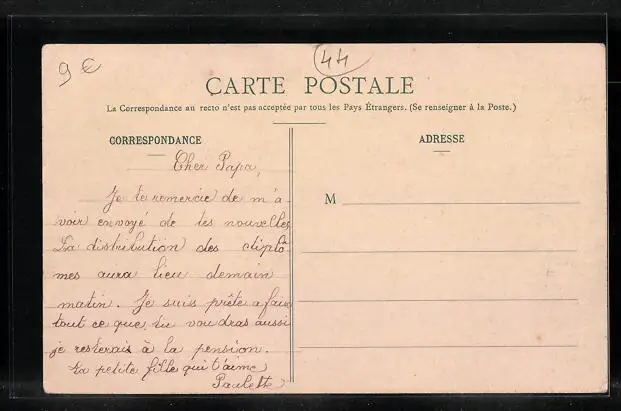 9 €
44
CARTE POSTALE
La Correspondance au recto n'est pas acceptée par tous les Pays Étrangers. (Se renseigner à la Poste.)
CORRESPONDANCE
Cher Papa,
Je te remercie de m'a
voir envoyé de tes nouvelles
La distribution des diplô
mes aura lieu demain
matin. Je suis prête a faire
tout ce que tu voudras aussi
je resterais à la pension.
Ta petite fille qui t'aime
Paulette
ADRESSE
M